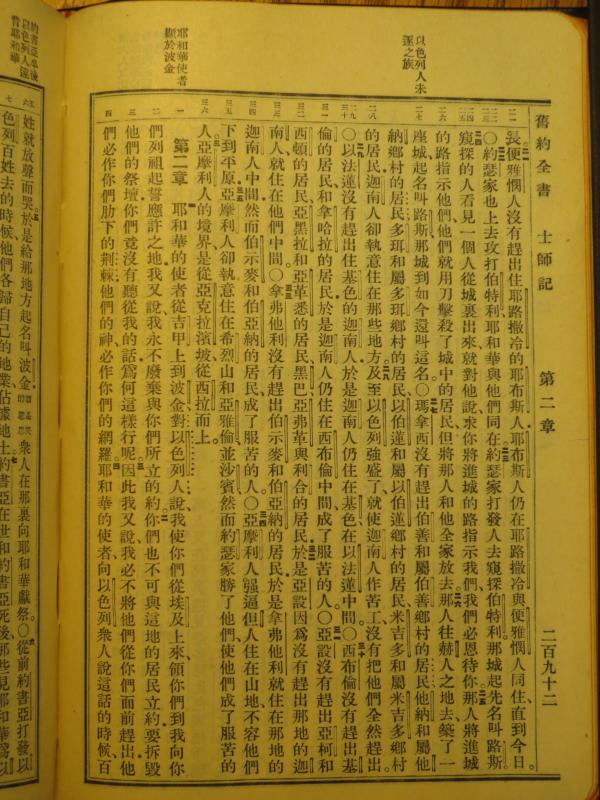 舊約全書　士師記　第二章　二百九十二
以色列人未
逐之族
耶和華使者
顯於波金
然便雅憫人沒有趕出住耶路撒冷的耶布斯人耶布斯人仍在耶路撒冷與便雅憫人同住直到今日。
○約瑟家也上去攻打伯特利耶和華與他們同在約瑟家打發人去窺探伯特利那城起先名叫路斯
窺探的人看見一個人從城裏出來就對他說求你將進城的路指示我們我們必恩待你那人將進城
的路指示他們他們就用刀擊殺了城中的居民但將那人和他全家放去那人往赫人之地去築了一
座城起名叫路斯那城到如今還叫這名○瑪拿西沒有趕出伯善和屬伯善鄉村的居民他納和屬他
納鄉村的居民多珥和屬多珥鄉村的居民以伯蓮和屬以伯蓮鄉村的居民米吉多和屬米吉多鄉村
的居民迦南人卻執意住在那些地方及至以色列強盛了就使迦南人作苦工沒有把他們全然趕出。
○以法蓮沒有趕出住基色的迦南人於是迦南人仍住在基色在以法蓮中間○西布倫沒有趕出基
倫的居民和拿哈拉的居民於是迦南人仍住在西布倫中間成了服苦的人○亞設沒有趕出亞柯和
西頓的居民亞黑拉和亞革悉的居民黑巴亞弗革與利合的居民於是亞設因爲沒有趕出那地的迦
南人就住在他們中間○拿弗他利沒有趕出伯示麥和伯亞納的居民於是拿弗他利就住在那地的
迦南人中間然而伯示麥和伯亞納的居民成了服苦的人○亞摩利人强逼但人住在山地不容他們
下到平原亞摩利人卻執意住在希烈山和亞雅倫並沙賓然而約瑟家勝了他們使他們成了服苦的
人亞摩利人的境界是從亞克拉濱坡從西拉而上。
第二章　耶和華的使者從吉甲上到波金對以色列人說我使你們從埃及上來領你們到我向你
們列祖起誓應許之地我又說我永不廢棄與你們所立的約你們也不可與這地的居民立約要拆毀
他們的祭壇你們竟沒有聽從我的話爲何這樣行呢因此我又說我必不將他們從你們面前趕出他
們必作你們肋下的荆棘他們的神必作你們的網羅耶和華的使者向以色列衆人說這話的時候百
姓就放聲而哭於是給那地方起名叫波金衆人在那裏向耶和華獻祭○從前約書亞打發以
色列百姓去的時候他們各歸自己的地業佔據地土約書亞在世和約書亞死後那些見耶和華爲以